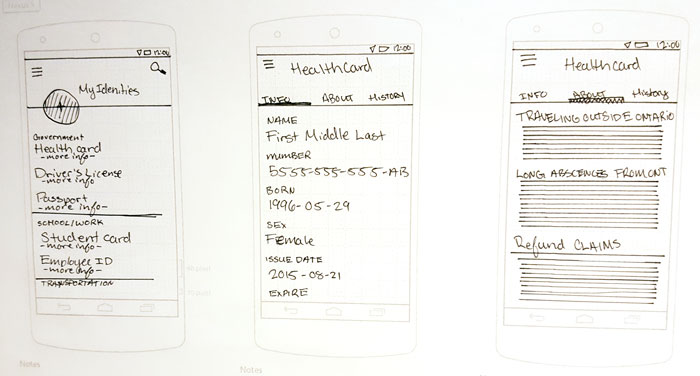 12:00
My Identities
Government
Health card
-more info-
Driver's License
-more info-
Passport
-more info-
SCHOOL/WORK
Student Card
-more info-
Employee ID
-more info-
TRANSPORTATION
Notes
12:00
HealthCard
INFO ABOUT HISTORY
NAME
First Middle Last
NUMBER
5555-555-555-AB
BORN
1996-05-29
SEX
Female
ISSUE DATE
2015-08-21
EXPIRE
Notes
12:00
Healthcard
INFO ABOUT History
TRAVELING OUTSIDE ONTARIO
LONG ABSCENCES FROM ONT
Refund CLAIMS